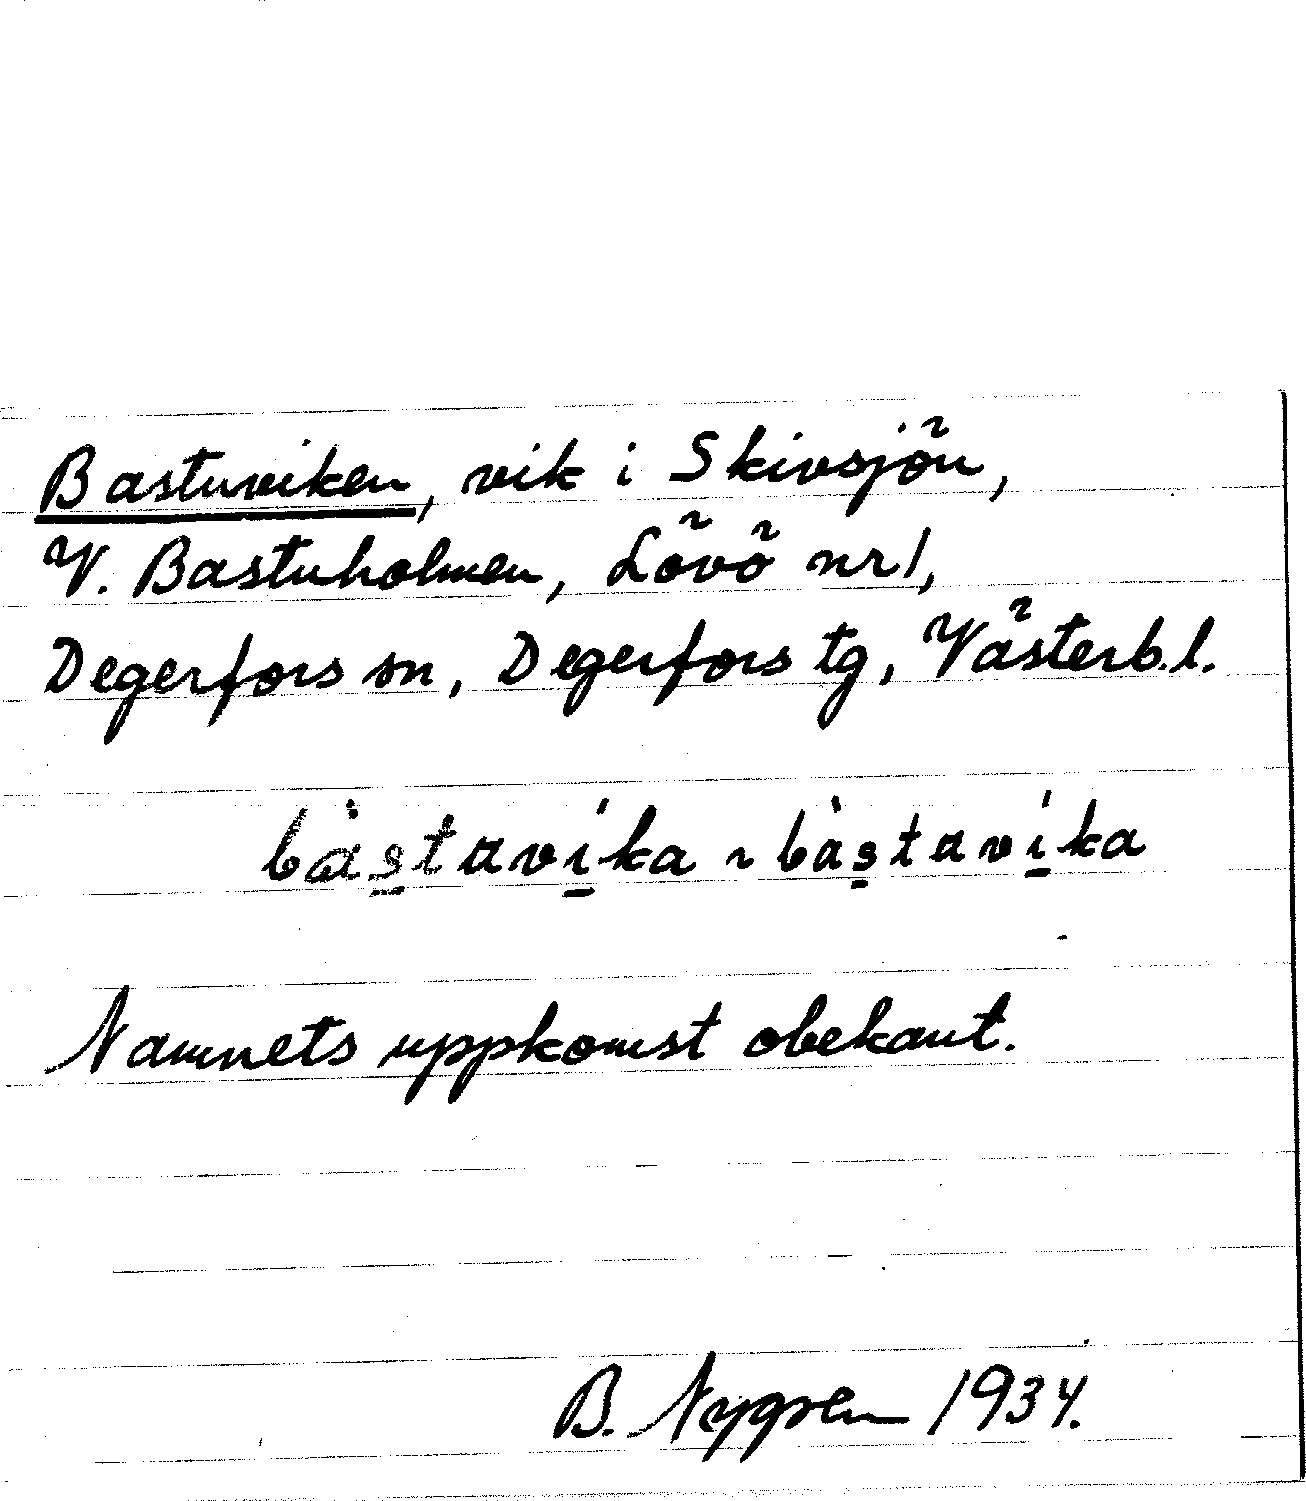 Bastuviken, vik i Skivsjön,
V. Bastuholmen, Lövö nr 1,
Degerfors sn, Degerfors tg, Västerb.l.
bàs̱taví̱ka ~ bàs̱taví̱ka
Namnets uppkomst obekant.
B. Nygren 1934.